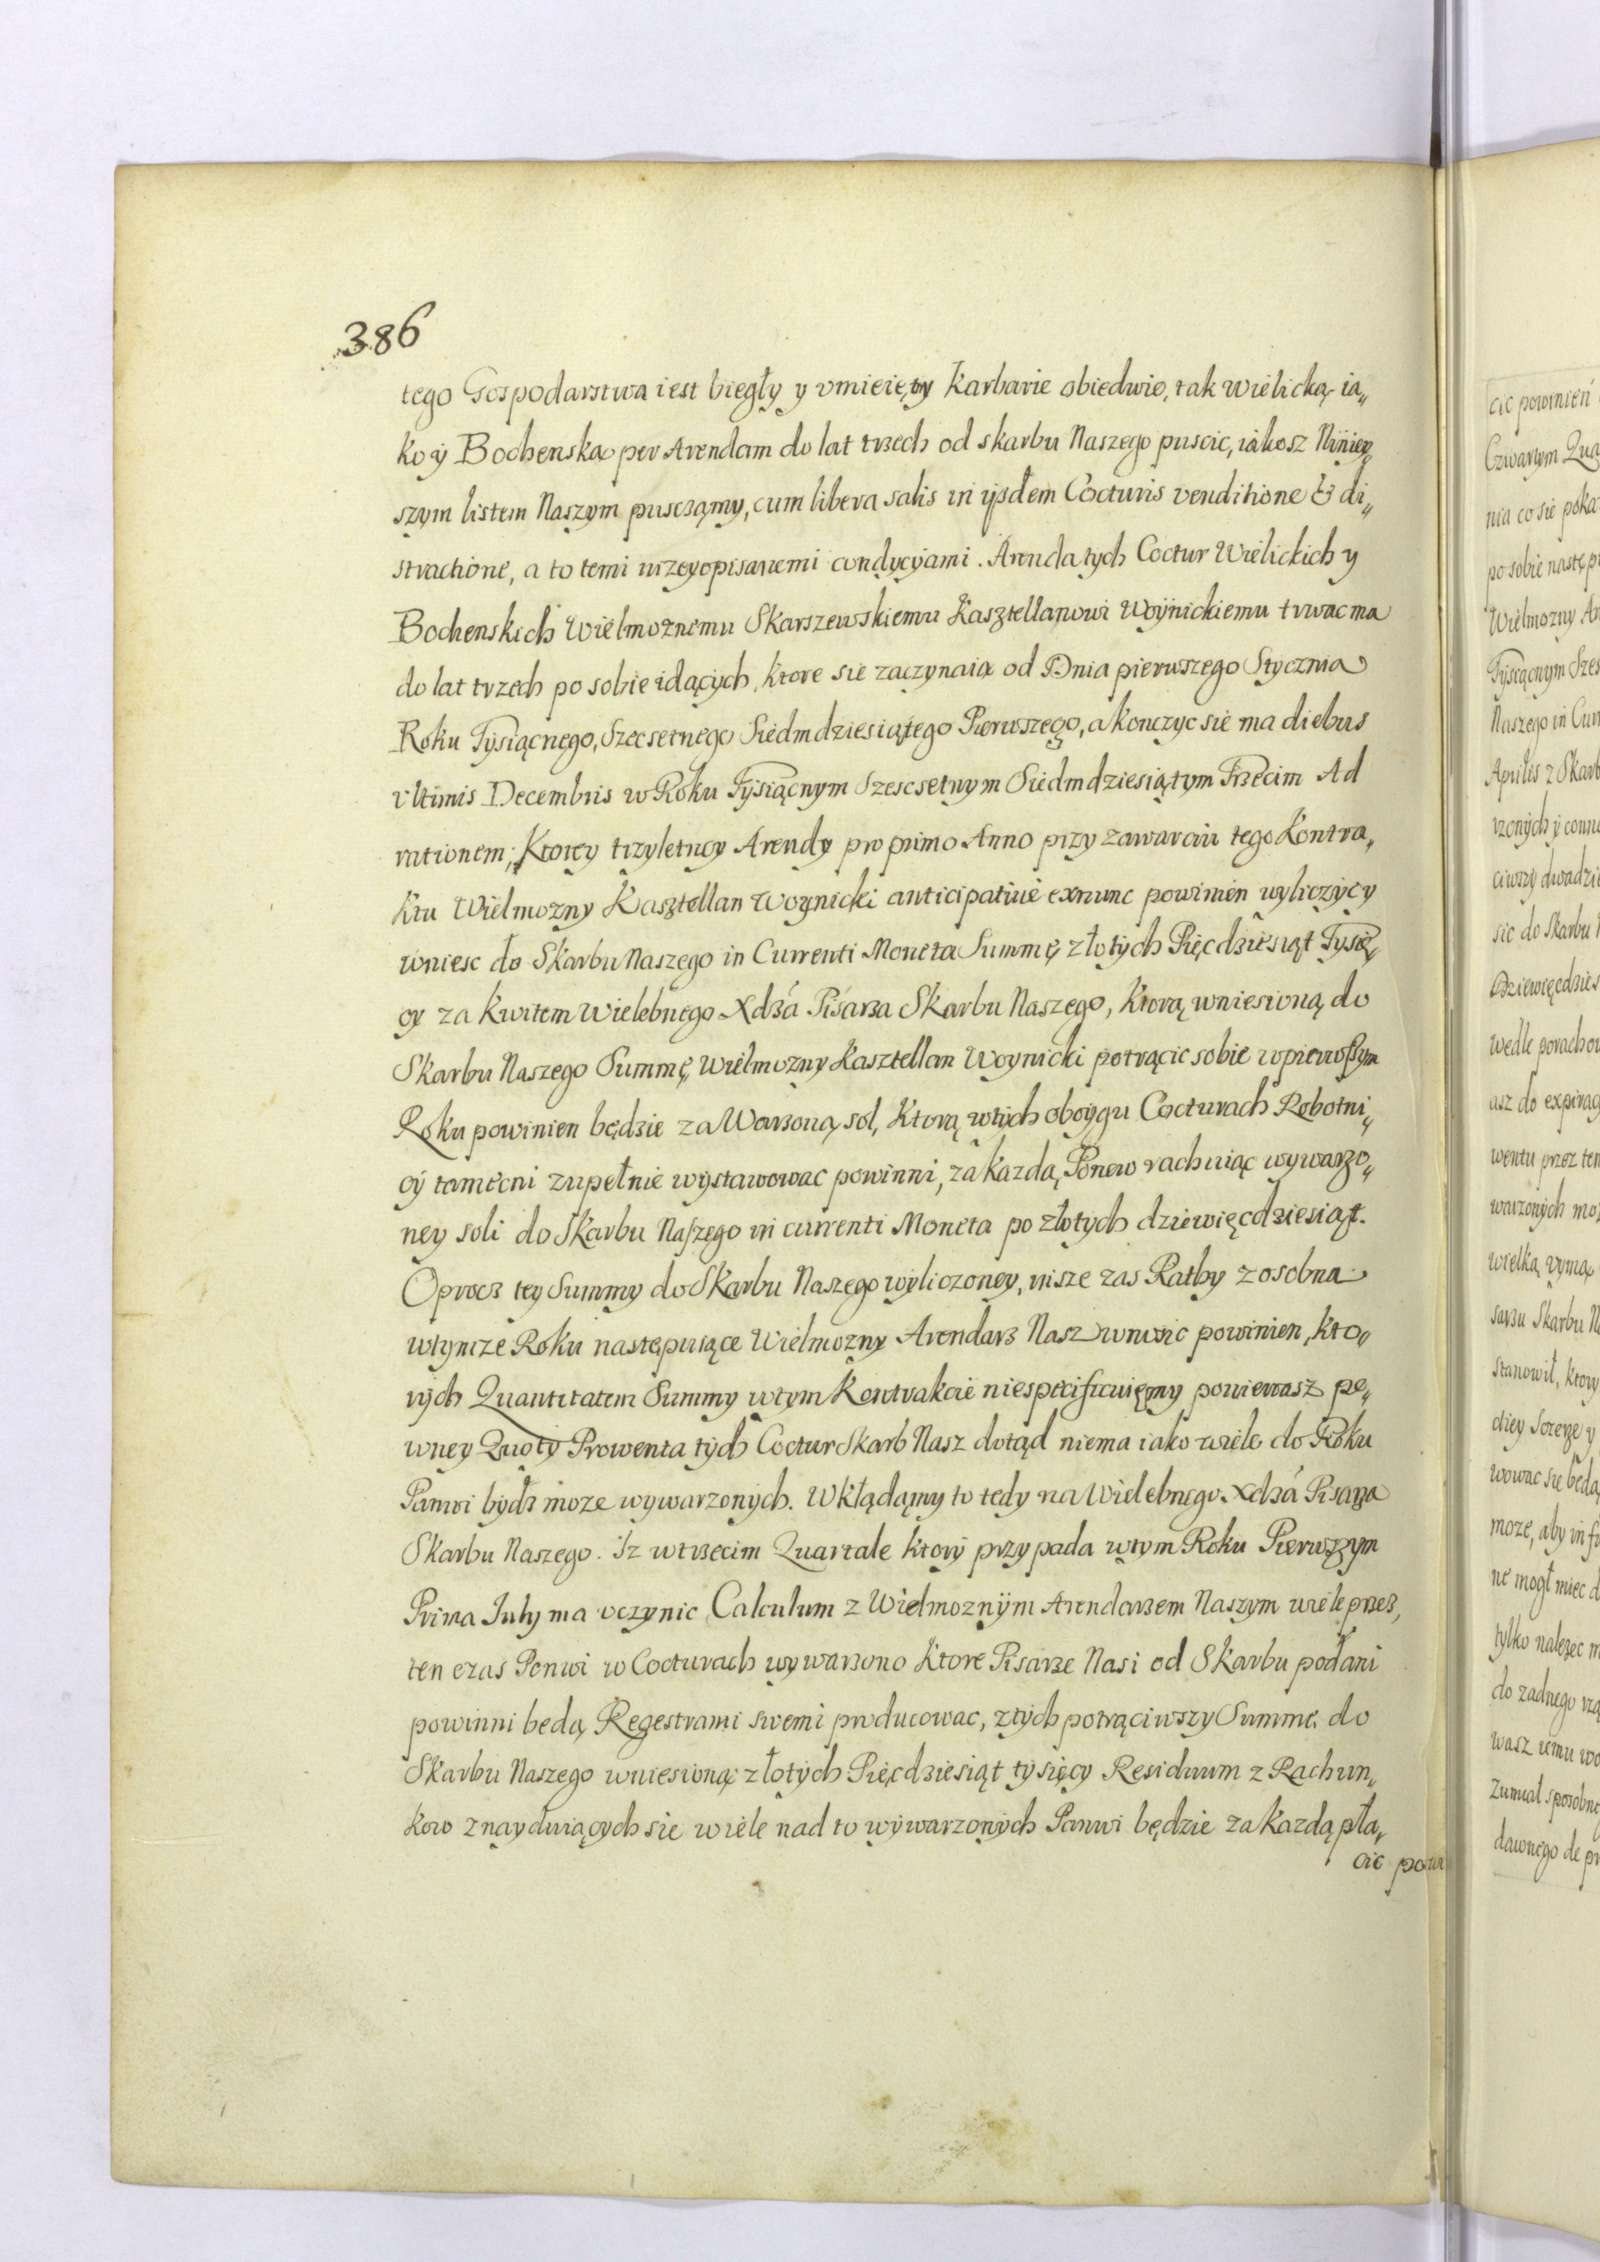 386
tego Gospodarstwa iest biegły y vmieięty Karbarie obiedwie, tak Wielicką ia„
ko y Bochenska per Arendam do lat trzech od skarbu Naszego puscic, iakosz Niniey„
szym listem Naszym pusczamy, cum libera salis in ijsdem Cocturis venditione & di„
stractione, a to temi nizeyopisanemi condycyiami. Arenda tych Coctur Wielickich y
Bochenskich Wielmoznemu Skarszewskiemu Kasztellanowi Woynickiemu trwac ma
do lat trzech po sobie idących, ktore sie zaczynaią od Dnia pierwszego Stycznia
Roku Tysiącnego, Szecsetnego Siedmdziesiątego Pierwszego, a konczyc sie ma diebus
vltimis Decembris w Roku Tysiącnym Szescsetnym Siedmdziesiątym Trzecim Ad
rationem, Ktorey trzyletney Arendy pro primo Anno przy zawarciu tego Kontra„
ktu Wielmozny Kasztellan Woynicki anticipative exnunc powinien wyliczyc y
wniesc do Skarbu Naszego in Currenti Moneta Summę złotych Pięcdziesiąt Tysię„
cy za kwitem Wielebnego Xdza Pisarza Skarbu Naszego, Ktorą wniesioną do
Skarbu Naszego Summę, Wielmozny Kasztellan Woynicki potrącic sobie wpierwszym
Roku powinien będzie za Warzoną sol, Ktorą wtych oboygu Cocturach Robotni„
cy tameczni zupełnie wystawowac powinni, za kazdą Panew rachuiąc wywarzo„
ney soli do Skarbu Naszego in currenti Moneta po złotych dziewięcdziesiąt.
Oprocz tey Summy do Skarbu Naszego wyliczoney, insze zas Rathy zosobna
wtymze Roku następuiące Wielmozny Arendarz Nasz wnosic powinien, kto„
rych Quantitatem Summy wtym Kontrakcie niespecificuięmy poniewasz pe„
wney Quoty Prowenta tych Coctur Skarb Nasz dotąd niema iako wiele do Roku
Panwi bydz moze wywarzonych. Wkłądamy to tedy na Wielebnego Xdza Pisarza
Skarbu Naszego. Iz wtrzecim Quartale ktory przypada wtym Roku Pierwszym
Prima July ma vczynic Calculum z Wielmoznym Arendarzem Naszym wiele przez,
ten czas Panwi w Cocturach wywarzono Ktore Pisarze Nasi od Skarbu podani
powinni bedą Regestrami swemi producowac, ztych potrąciwszy Summe do
Skarbu Naszego wniesioną złotych Pięcdziesiąt tysięcy Residuum z Rachun„
kow znayduiących sie wiele nad to wywarzonych Panwi będzie za kazdą pła„
cic powi